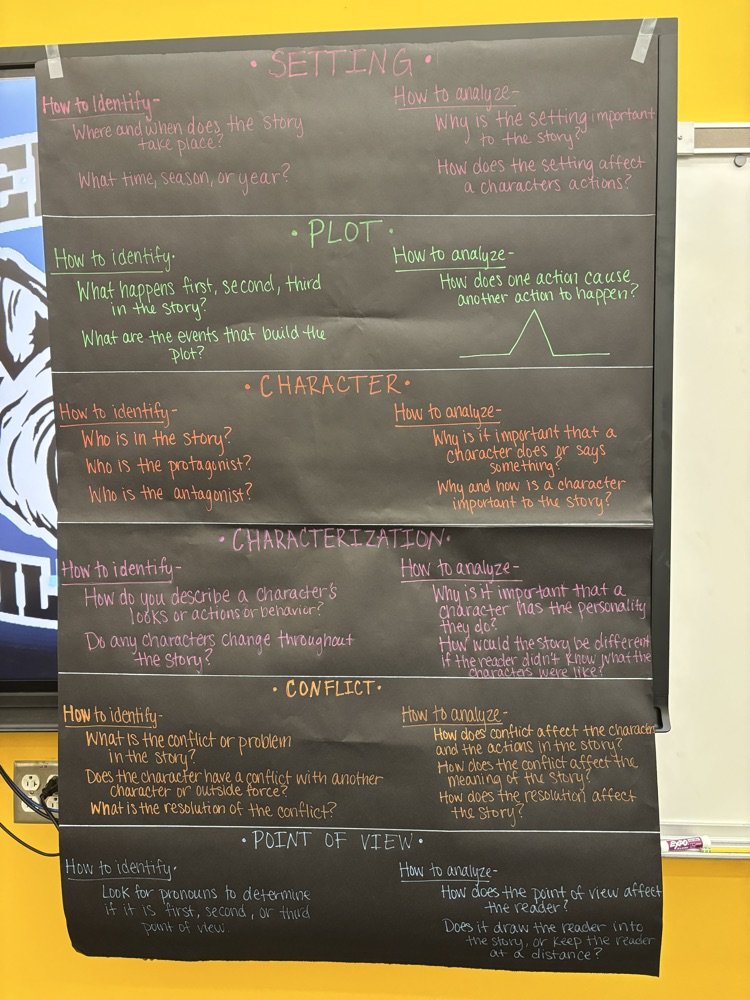 · SETTING ·
How to Identify-
Where and when does the story
take place?
What time, season, or year?
How to analyze-
Why is the setting important
to the story?
How does the setting affect
a characters actions?
· PLOT ·
How to identify-
What happens first, second, third
in the story?
What are the events that build the
plot?
How to analyze-
How does one action cause
another action to happen?
· CHARACTER ·
How to identify-
Who is in the story?
Who is the protagonist?
Who is the antagonist?
How to analyze-
Why is it important that a
character does or says
something?
Why and how is a character
important to the story?
· CHARACTERIZATION ·
How to identify-
How do you describe a character's
looks or actions or behavior?
Do any characters change throughout
the story?
How to analyze-
Why is it important that a
character has the personality
they do?
How would the story be different
if the reader didn't know what the
characters were like?
· CONFLICT ·
How to identify-
What is the conflict or problem
in the story?
Does the character have a conflict with another
character or outside force?
What is the resolution of the conflict?
How to analyze-
How does conflict affect the character
and the actions in the story?
How does the conflict affect the
meaning of the story?
How does the resolution affect
the story?
· POINT OF VIEW ·
How to identify-
Look for pronouns to determine
if it is first, second, or third
point of view.
How to analyze-
How does the point of view affect
the reader?
Does it draw the reader into
the story, or keep the reader
at a distance?
EXPO